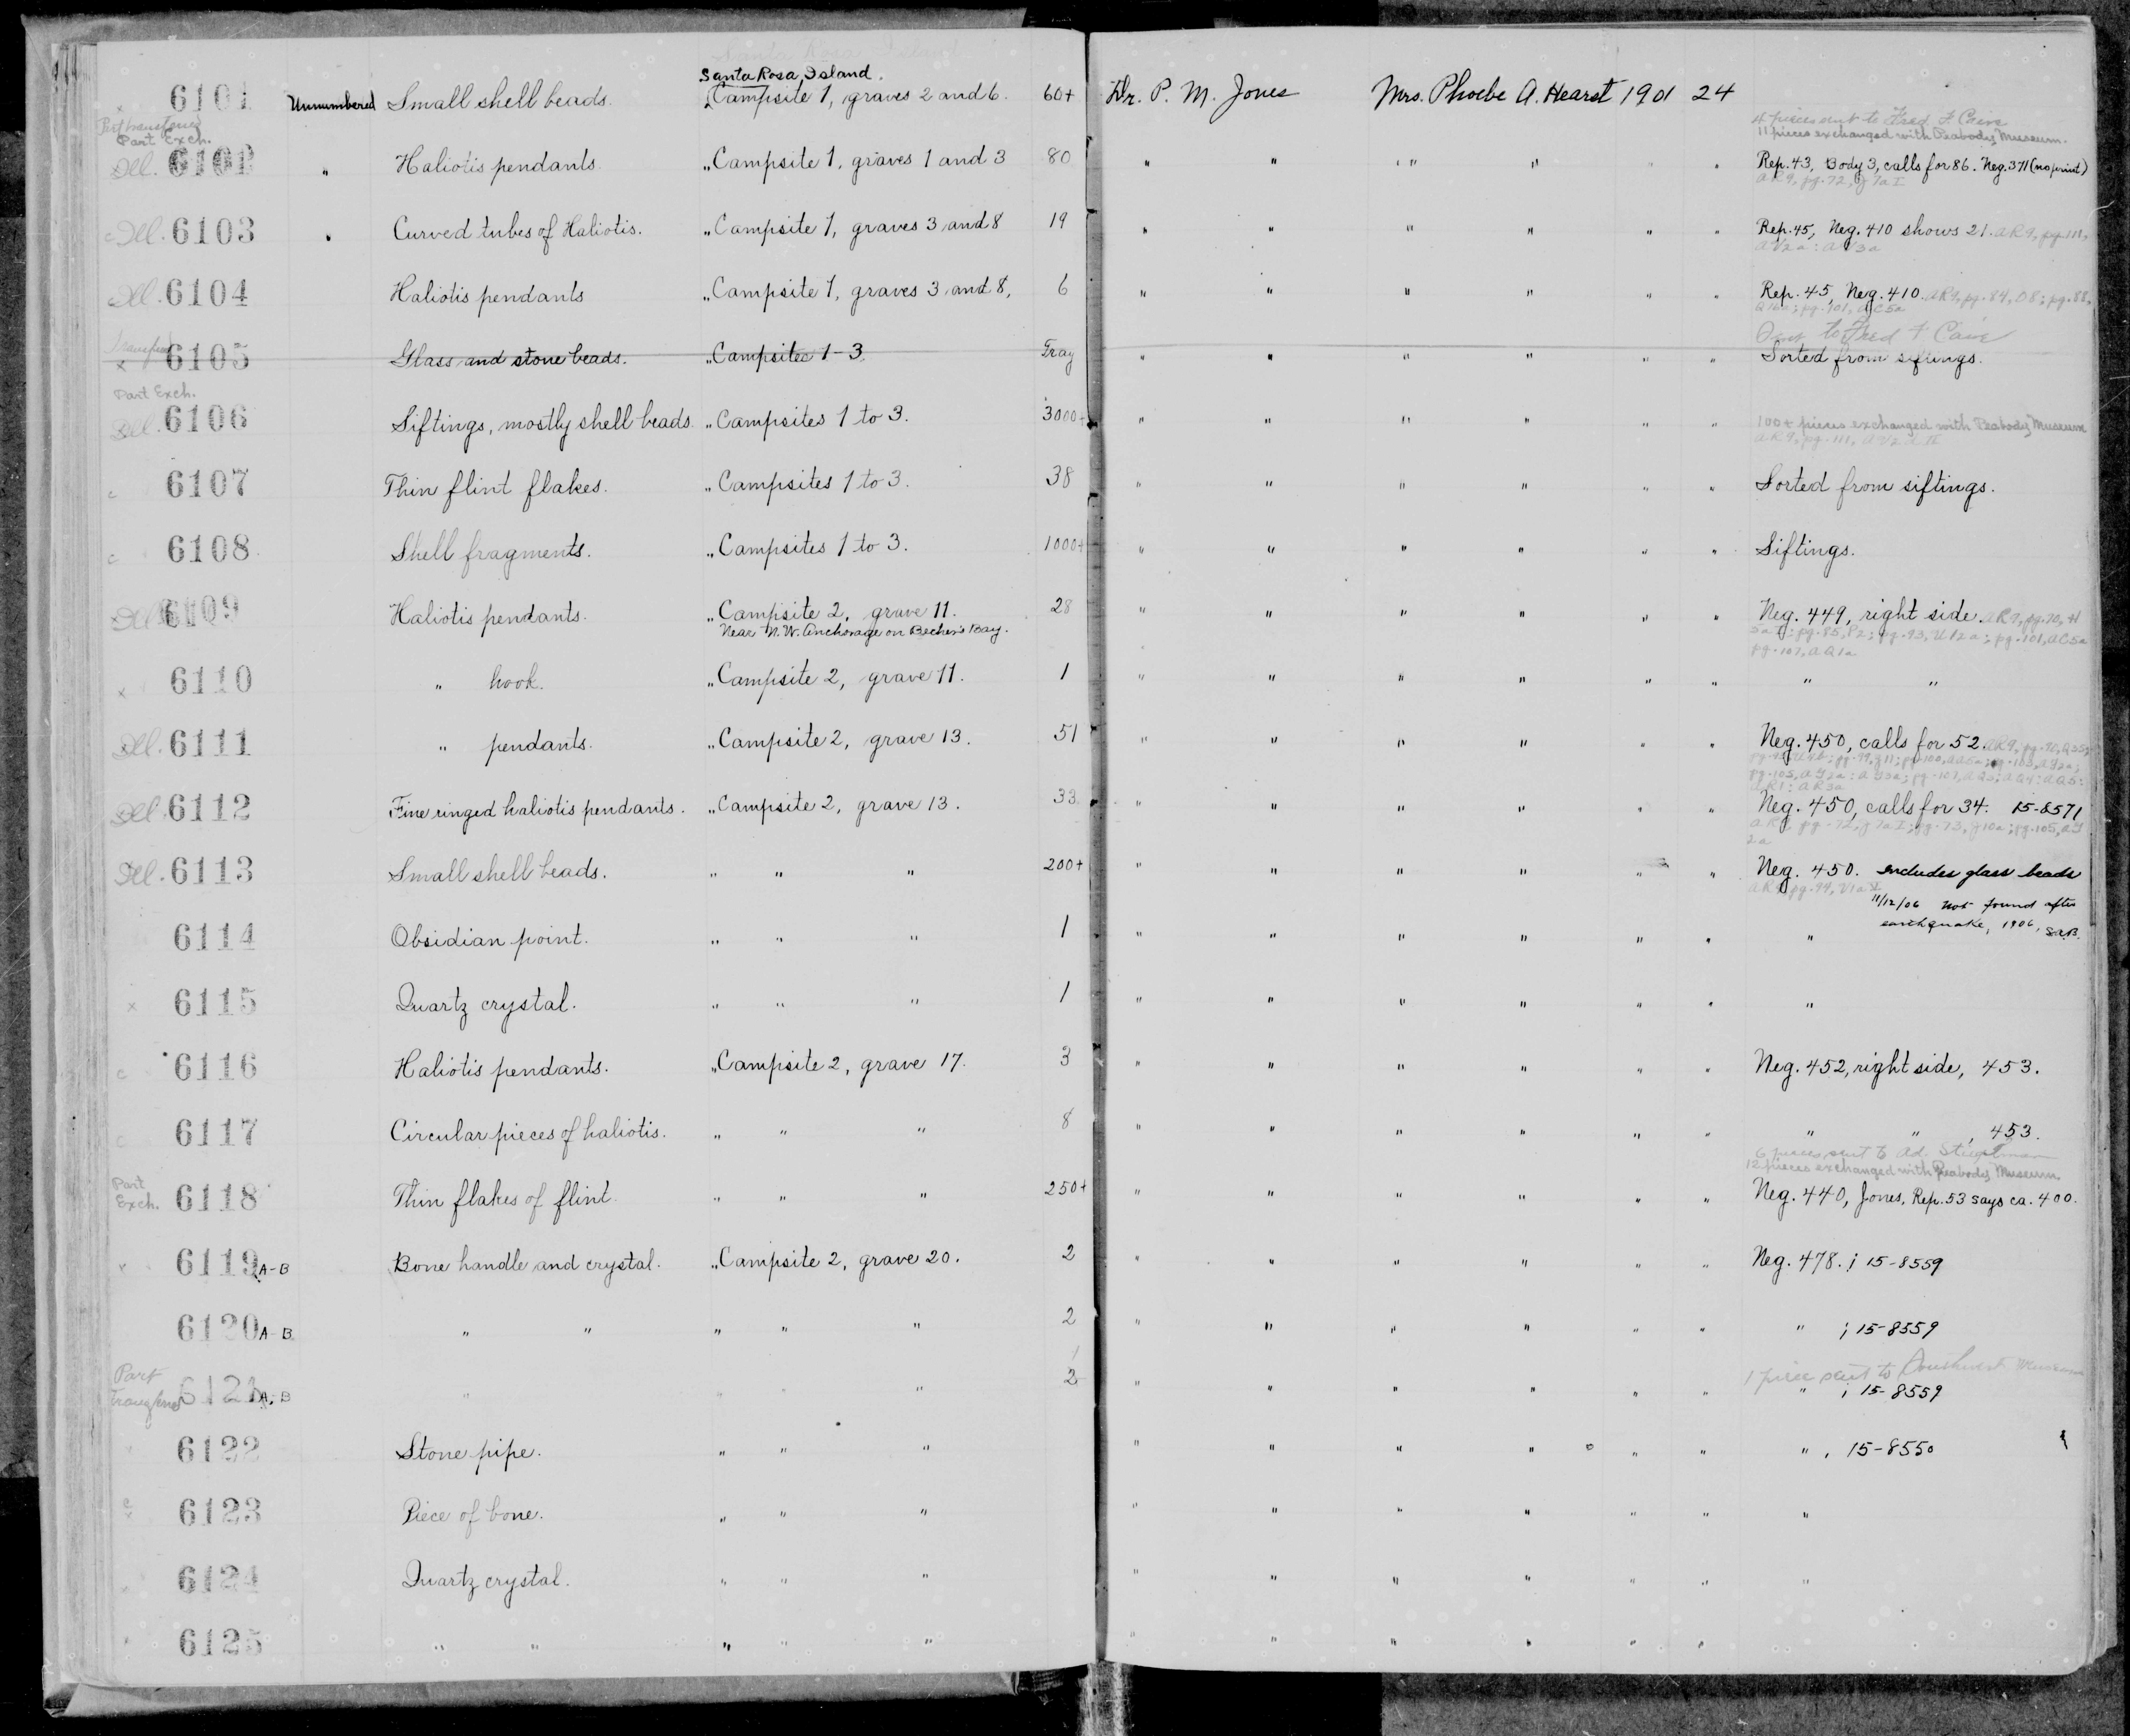 Santa Rosa Island.
6101 Unnumbered Small shell beads. Campsite 1, graves 2 and 6. 60+ Dr. P. M. Jones Mrs. Phoebe A. Hearst 1901 24
Part transferred
4 pieces sent to Fred F.
Part Exch.
11 pieces exchanged with Peabody Museum.
Ill. 6102 " Haliotis pendants. " Campsite 1, graves 1 and 3 80 " " " " " " Rep. 43, Body 3, calls for 86. Neg. 371 (no print)
AR9, pg. 72, J7a I
c Ill. 6103 " Curved tubes of Haliotis. " Campsite 1, graves 3 and 8 19 " " " " " " Rep. 45, Neg. 410 shows 21. AR9, pg. 111,
AV2a; AV3a
Ill. 6104 Haliotis pendants " Campsite 1, graves 3 and 8, 6 " " " " " " Rep. 45, Neg. 410. AR9, pg. 84, O8; pg. 88,
pg. 101, AC5a
to Fred F.
x 6105 Glass and stone beads. " Campsites 1-3. Tray " " " " " " Sorted from siftings.
Part Exch.
Ill. 6106 Siftings, mostly shell beads. " Campsites 1 to 3. 3000+ " " " " " " 100+ pieces exchanged with Peabody Museum
AR9, pg. 111, AV2a II
c 6107 Thin flint flakes. " Campsites 1 to 3. 38 " " " " " " Sorted from siftings.
c 6108 Shell fragments. " Campsites 1 to 3. 1000+ " " " " " " Siftings.
Ill. 6109 Haliotis pendants. " Campsite 2, grave 11. 28 " " " " " " Neg. 449, right side. AR9, pg. 70, H
Near N.W. Anchorage on Becher's Bay.
pg. 85, P2; pg. 93, U12a; pg. 101, AC5a
pg. 107, AQ1a
x 6110 " hook. " Campsite 2, grave 11. 1 " " " " " " " "
Ill. 6111 " pendants. " Campsite 2, grave 13. 51 " " " " " " Neg. 450, calls for 52. AR9,
Ill. 6112 Fine ringed haliotis pendants. " Campsite 2, grave 13. 33 " " " " " " Neg. 450, calls for 34. 15-8571
AR9, pg. 72, J7a I; pg. 73, J10a; pg. 105,
2a
Ill. 6113 Small shell beads. " " " 200+ " " " " " " Neg. 450. includes glass beads
AR9, pg. 94, V1a
11/12/06 not found after
earthquake, 1906, S.A.B.
6114 Obsidian point. " " " 1 " " " " " " "
x 6115 Quartz crystal. " " " 1 " " " " " " "
c 6116 Haliotis pendants. " Campsite 2, grave 17. 3 " " " " " " Neg. 452, right side, 453.
c 6117 Circular pieces of haliotis. " " " 8 " " " " " " " " , 453.
6 pieces sent to Ad.
12 pieces exchanged with Peabody Museum.
Part Exch. 6118 Thin flakes of flint. " " " 250+ " " " " " " Neg. 440, Jones, Rep. 53 says ca. 400.
x 6119 A-B Bone handle and crystal. " Campsite 2, grave 20. 2 " " " " " " Neg. 478. ; 15-8559
6120 A-B " " " " " 2 " " " " " " " ; 15-8559
Part Transferred
1 piece sent to Museum
6121 A, B " " " " 1 2 " " " " " " " ; 15-8559
6122 Stone pipe. " " " " " " " " " " , 15-8550
c x 6123 Piece of bone. " " " " " " " " " "
6124 Quartz crystal. " " " " " " " " " "
6125 " " " " " " " " " " "